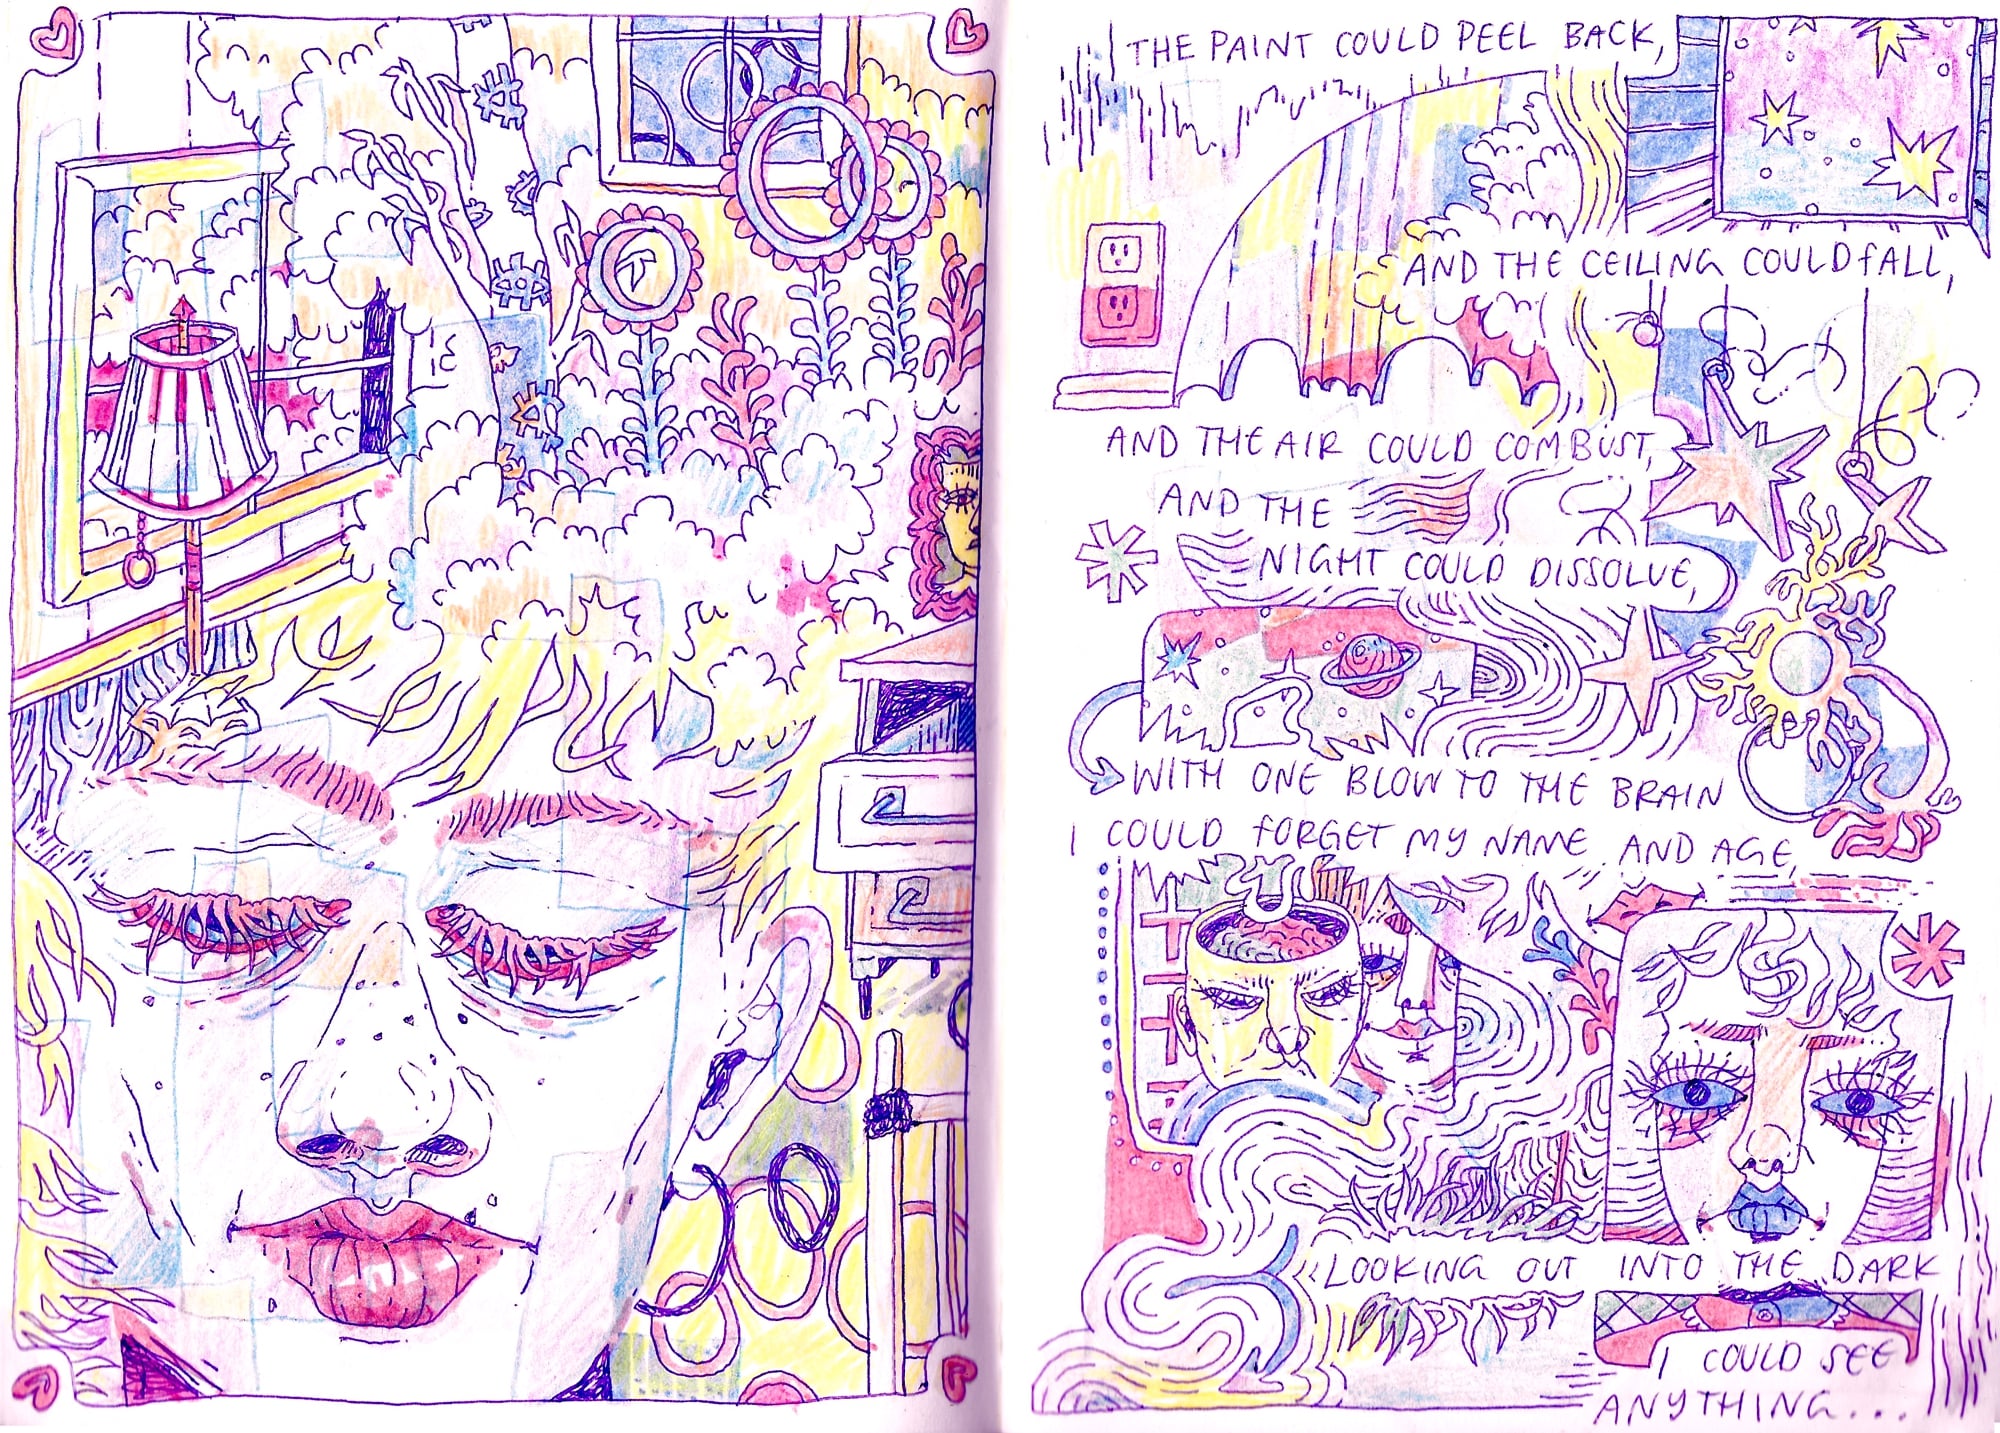 THE PAINT COULD PEEL BACK,
AND THE CEILING COULD fALL,
AND THE AIR COULD COMBUST,
AND THE
NIGHT COULD DISSOLVE,
WITH ONE BLOW TO THE BRAIN
I COULD fORGET MY NAME AND AGE,
LOOKING OUT INTO THE DARK
I COULD SEE
ANYTHING...